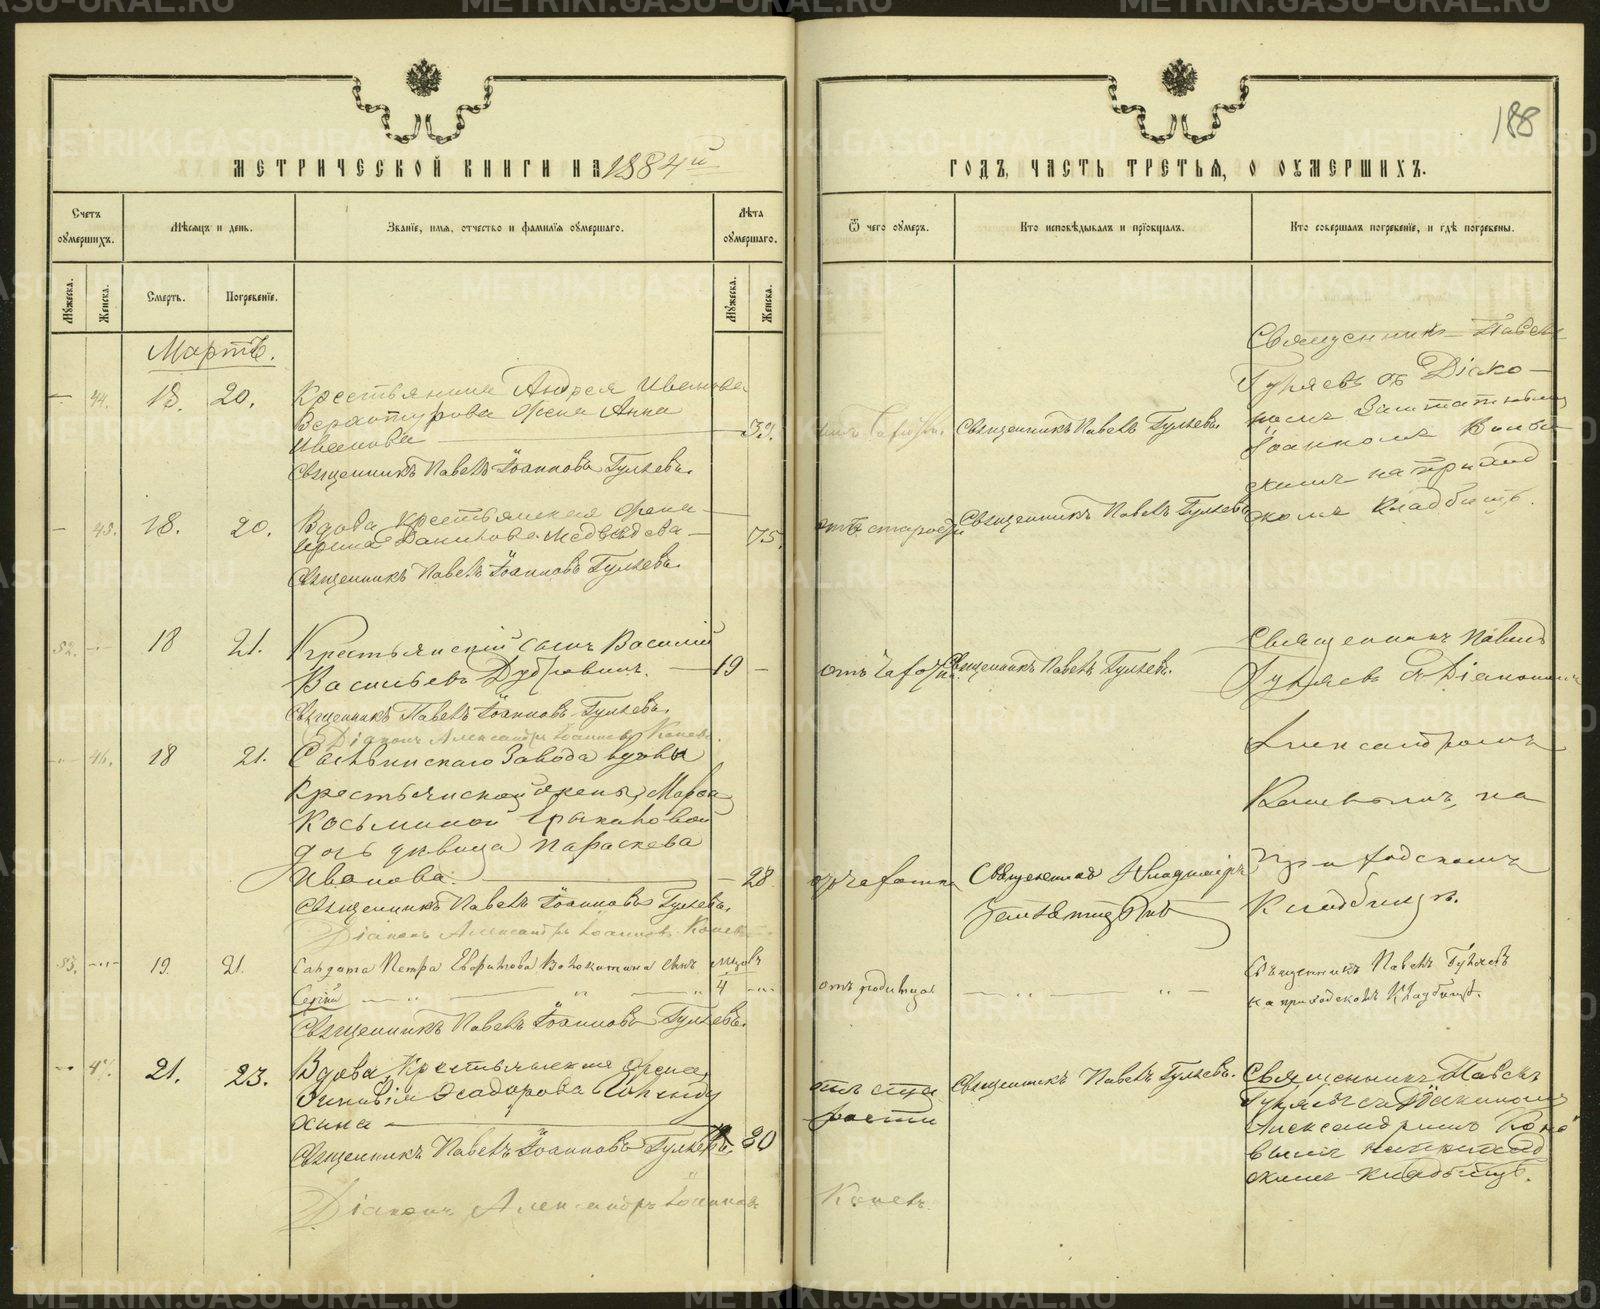 МЕТРИЧЕСКОЙ КНИГИ НА 1884й
Счетъ оумершихъ.
Мѣсяцъ и день.
Званіе, имя, отчество и фамилія оумершаго.
Лѣта оумершаго.
Мужеска.
Женска.
Смерть.
Погребеніе.
Мужеска.
Женска.
Мартъ.
— 44. 18. 20. Крестьянина Андрея Иванова
Верхотурова жена Анна
Иванова — 33.
Священникъ Павелъ Іоанновъ Гуляевъ.
— 45. 18. 20. Вдова Крестьянская жена
Ирина Данилова Медведева — 75.
Священникъ Павелъ Іоанновъ Гуляевъ.
52. — 18 21. Крестьянскій сынъ Василій
Васильевъ — 19 —
Священникъ Павелъ Іоанновъ Гуляевъ.
Діаконъ Александръ Іоанновъ Коневъ.
46. 18 21. Завода вдовы
Крестьянской жены Марфы
Косьминой
дочь дѣвица Параскева
Иванова. — 28
Священникъ Павелъ Іоанновъ Гуляевъ.
Діаконъ Александръ Іоанновъ Коневъ
53. — 19. 21. Солдата Петра Волокитина сынъ мцовъ
Сергій 4
Священникъ Павелъ Іоанновъ Гуляевъ.
47. 21. 23. Вдова Крестьянская жена
80
Священникъ Павелъ Іоанновъ Гуляевъ.
Діаконъ Александръ Іоанновъ
188
ГОДЪ, ЧАСТЬ ТРЕТЬЯ, О ОУМЕРШИХЪ.
Ѿ чего оумеръ.
Кто исповѣдывалъ и прїобщалъ.
Кто совершалъ погребенїе, и гдѣ погребены.
Священникъ Павелъ
Гуляевъ съ Діако-
номъ Заштатнымъ
Іоанномъ
на приход
скомъ кладбищѣ.
Священникъ Павелъ Гуляевъ.
отъ старости Священникъ Павелъ Гуляевъ
отъ Священникъ Павелъ Гуляевъ.
Священникъ Павелъ
Гуляевъ съ Діакономъ
Александромъ
Коневымъ, на
приходскомъ
Кладбищѣ.
Священникъ Владиміръ
отъ родимца
Священникъ Павелъ Гуляевъ
на приходскомъ Кладбищѣ.
отъ ста
рости
Священникъ Павелъ Гуляевъ.
Священникъ Павелъ
Гуляевъ съ Діакономъ
Александромъ Коне
вымъ на приход
скомъ кладбищѣ.
Коневъ.
METRIKI.GASO-URAL.RU